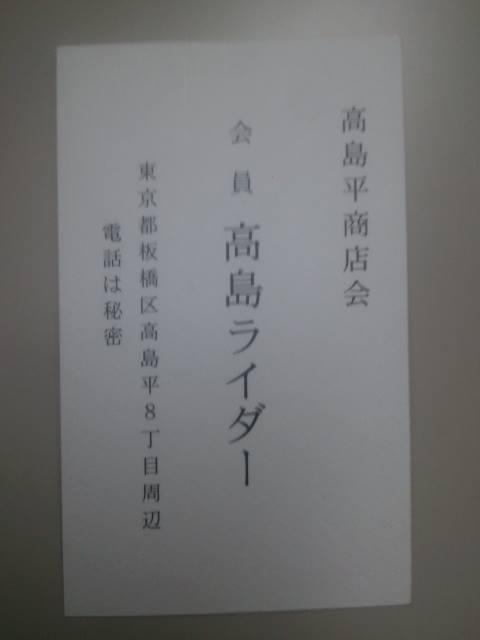 高島平商店会
会員 高島ライダー
東京都板橋区高島平8丁目周辺
電話は秘密